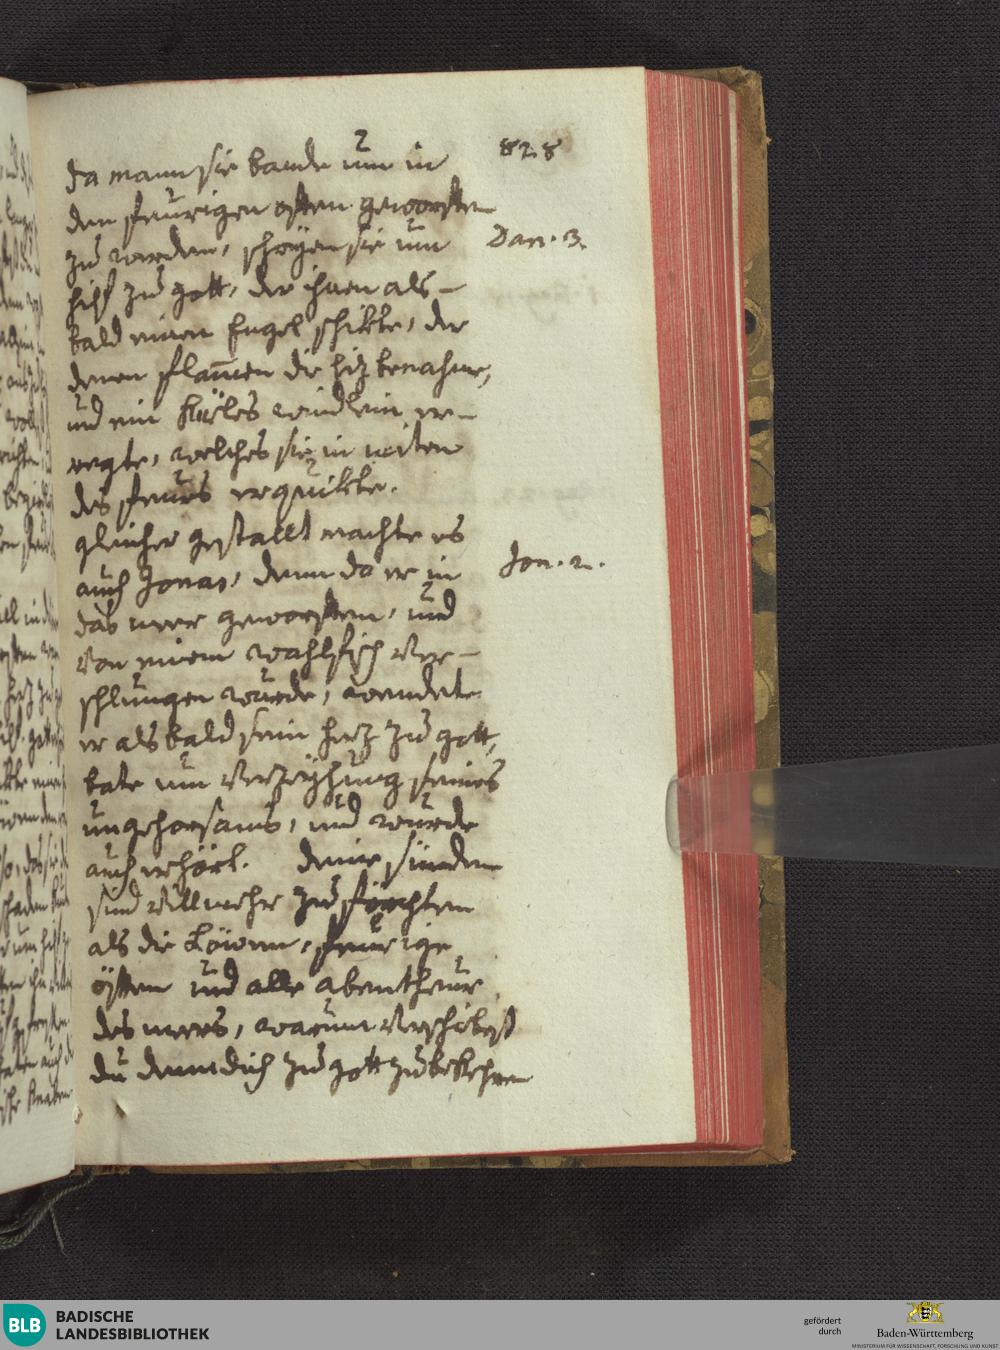 828
da mann sie bande um in
den feurigen offen geworffen
zu werden, schryen sie um
hilf zu gott, der ihnen als-
bald einen Engel schikte, der
denen flam̄en die hiz benahme,
und ein küeles windlein er-
regte, welches sie in miten
des feurs erquikte.
gleicher gestallt machte es
auch Jonas, denn da er in
das meer geworffen, und
von einem wahlfisch ver-
schlungen wurde, wendete
er alsbald sein herz zu gott,
bate um verzeyhung seines
ungehorsams, und wurde
auch erhört. deine sünden
sind villmehr zu förchten
als die Löwen, feurige
öffen und alle abentheur
des meers, warum verschibest
du denn dich zu gott zu bekehren
Dan. 3.
Jon. 2.
BLB BADISCHE
LANDESBIBLIOTHEK
gefördert
durch
Baden-Württemberg
MINISTERIUM FÜR WISSENSCHAFT, FORSCHUNG UND KUNST